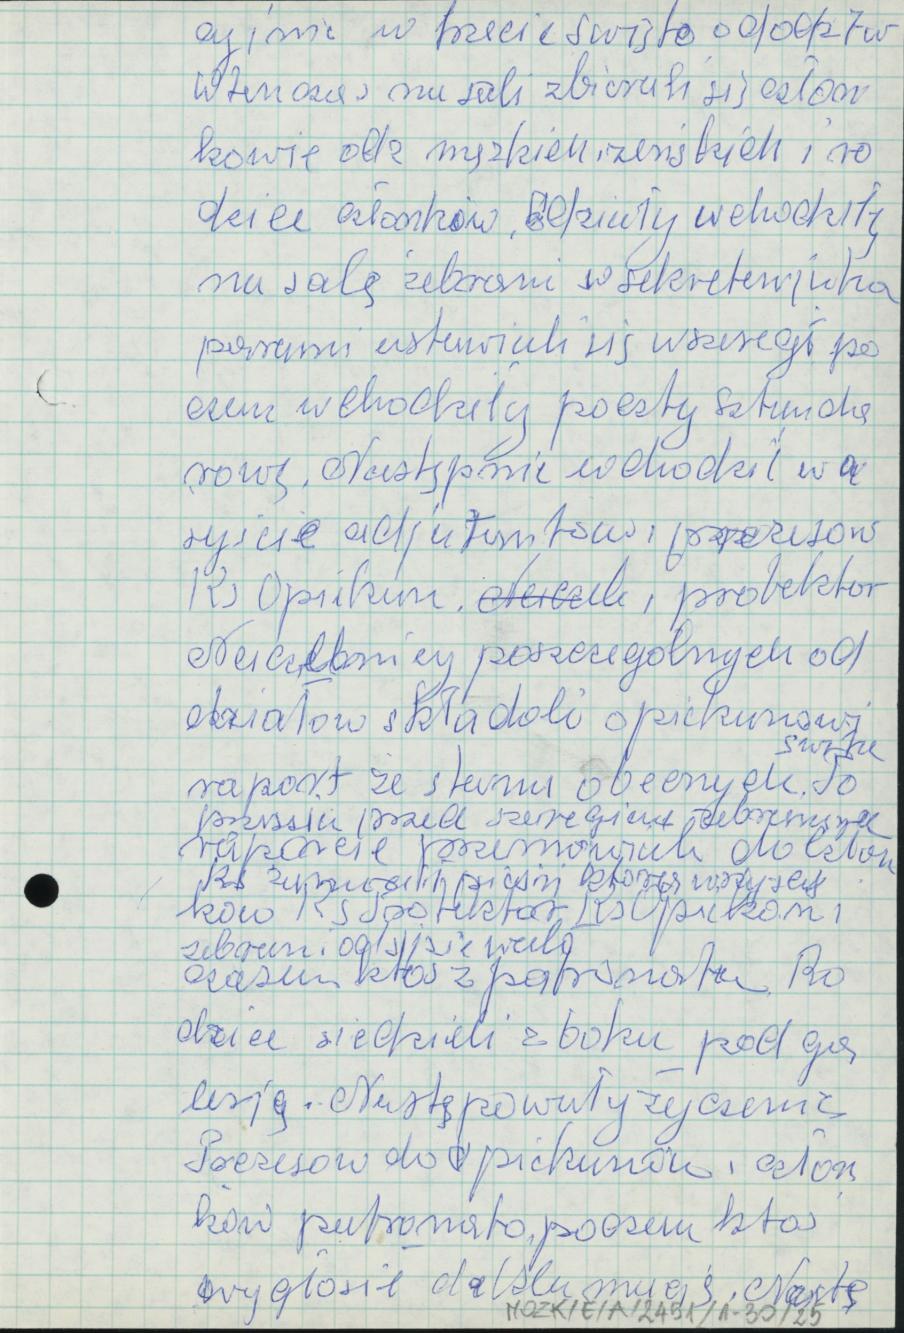 cyjnie w trzecie święto od odz 7 w
Wówczas na sali zbierali się człon
kowie odz męzkich i żeńskich i ro
dzice członków. Oddziały wchodziły
na salę zebrani w sekretarjacie
parami ustawiali się w szeregi po
czem wchodziły poczty sztanda
rowe. Następnie wchodził w a
syście adjutantów i prezesów
KS Opiekun, protektor
Naczelnicy poszczególnych od
działów składali opiekunowi
swoje
raport ze stanu obecnych. Po
przejściu przed szeregiem zebranych
raporcie przemawiali do człon
Ks zaintonował pieśń którą wszyscy
ków Ks Protektor, Ks Opiekun i
zebrani odśpiewali
czasem ktoś z patronatu. Ro
dzice siedzieli z boku pod ga
lerją. Następowały życzenia
Prezesów do opiekunów, człon
ków patronatu, poczem ktoś
wygłosił deklamację. Nastę
MOZK/E/A/2451/1-30/25